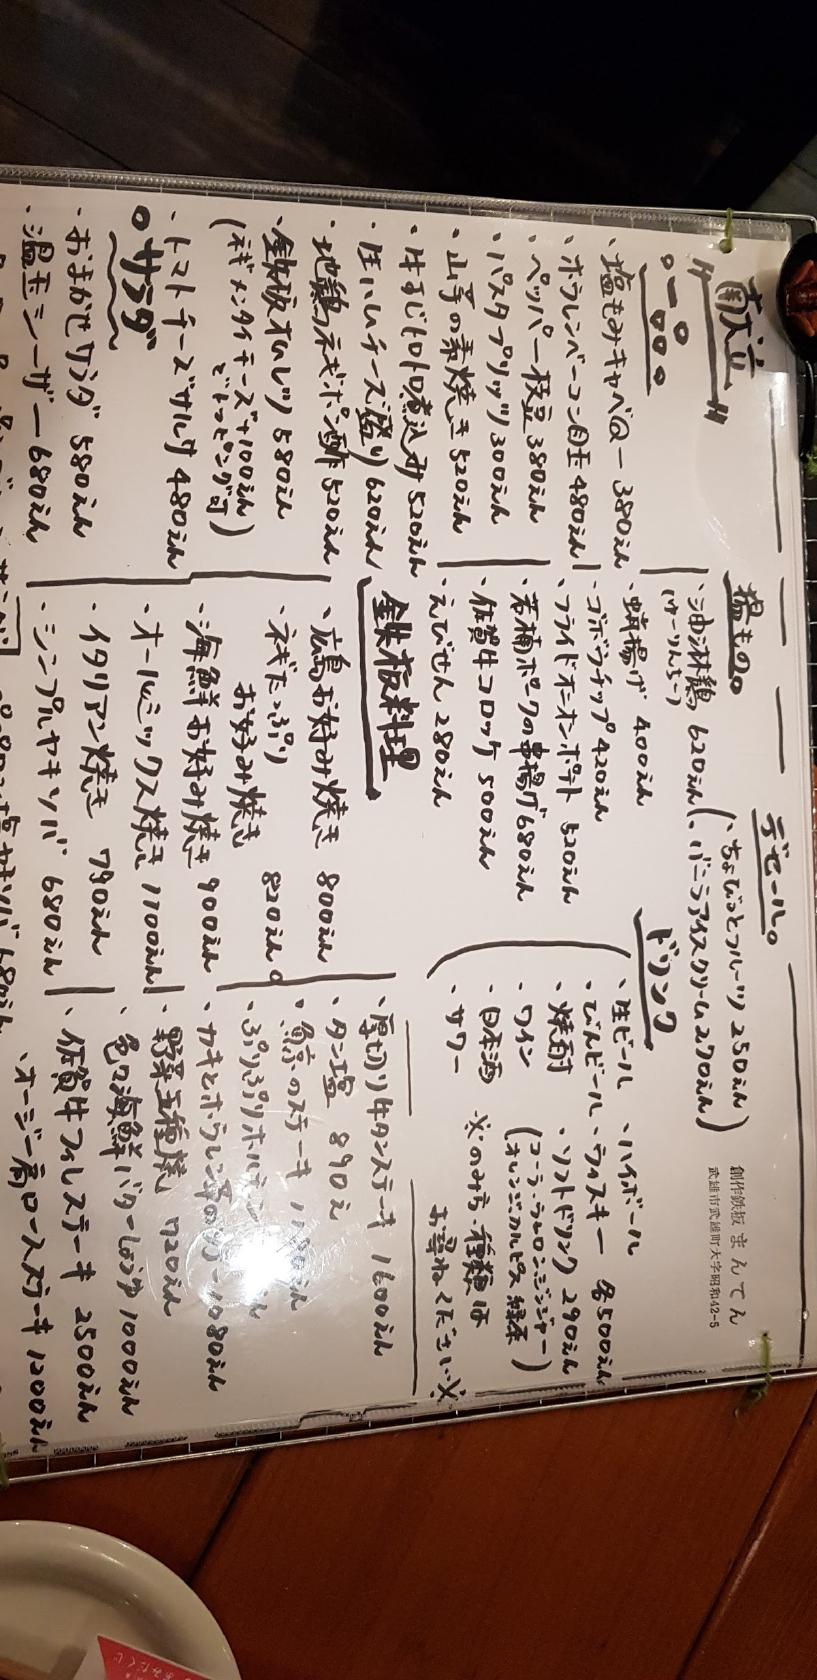 献立
一品
・塩もみキャベツ 380えん
・ホウレンベーコン目玉 480えん
・ペッパー枝豆 380えん
・パスタプリッツ 300えん
・山芋の素焼き 520えん
・牛すじトロトロ煮込み 520えん
・生ハムチーズ盛り 620えん
・地鶏ネギポン酢 520えん
・鉄板オムレツ 580えん
(ネギ メンタイ チーズ +100えん)
でトッピング可
・トマトチーズサルサ 480えん
サラダ
・おまかせサラダ 580えん
・温玉シーザー 680えん
揚もの。
・油淋鶏 620えん
(ゆーりんちー)
・蛸揚げ 400えん
・ゴボウチップ 420えん
・フライドオニオンポテト 520えん
・若楠ポークの串揚げ 680えん
・佐賀牛コロッケ 500えん
・えびせん 280えん
デセール。
・ちょびっとフルーツ 250えん
・バニラアイスクリーム 270えん
ドリンク
・生ビール ・ハイボール
・びんビール ・ウィスキー 各500えん
・焼酎 ・ソフトドリンク 290えん
・ワイン
・日本酒
・サワー
※のみ方・種類は
お尋ねください※
鉄板料理
・広島お好み焼き 800えん
・ネギたっぷり
お好み焼き 820えん
・海鮮お好み焼き 900えん
・オールミックス焼き 1100えん
・イタリアン焼き 790えん
・シンプルヤキソバ 680えん
・厚切り牛タンステーキ 1600えん
・タン塩 890え
・ぷりぷりホルモン
・野菜五種焼 720えん
・色々海鮮バターしょうゆ 1000えん
・佐賀牛フィレステーキ 2500えん
・オージー肩ロースステーキ 1200えん
創作鉄板 まんてん
武雄市武雄町大字昭和42-5